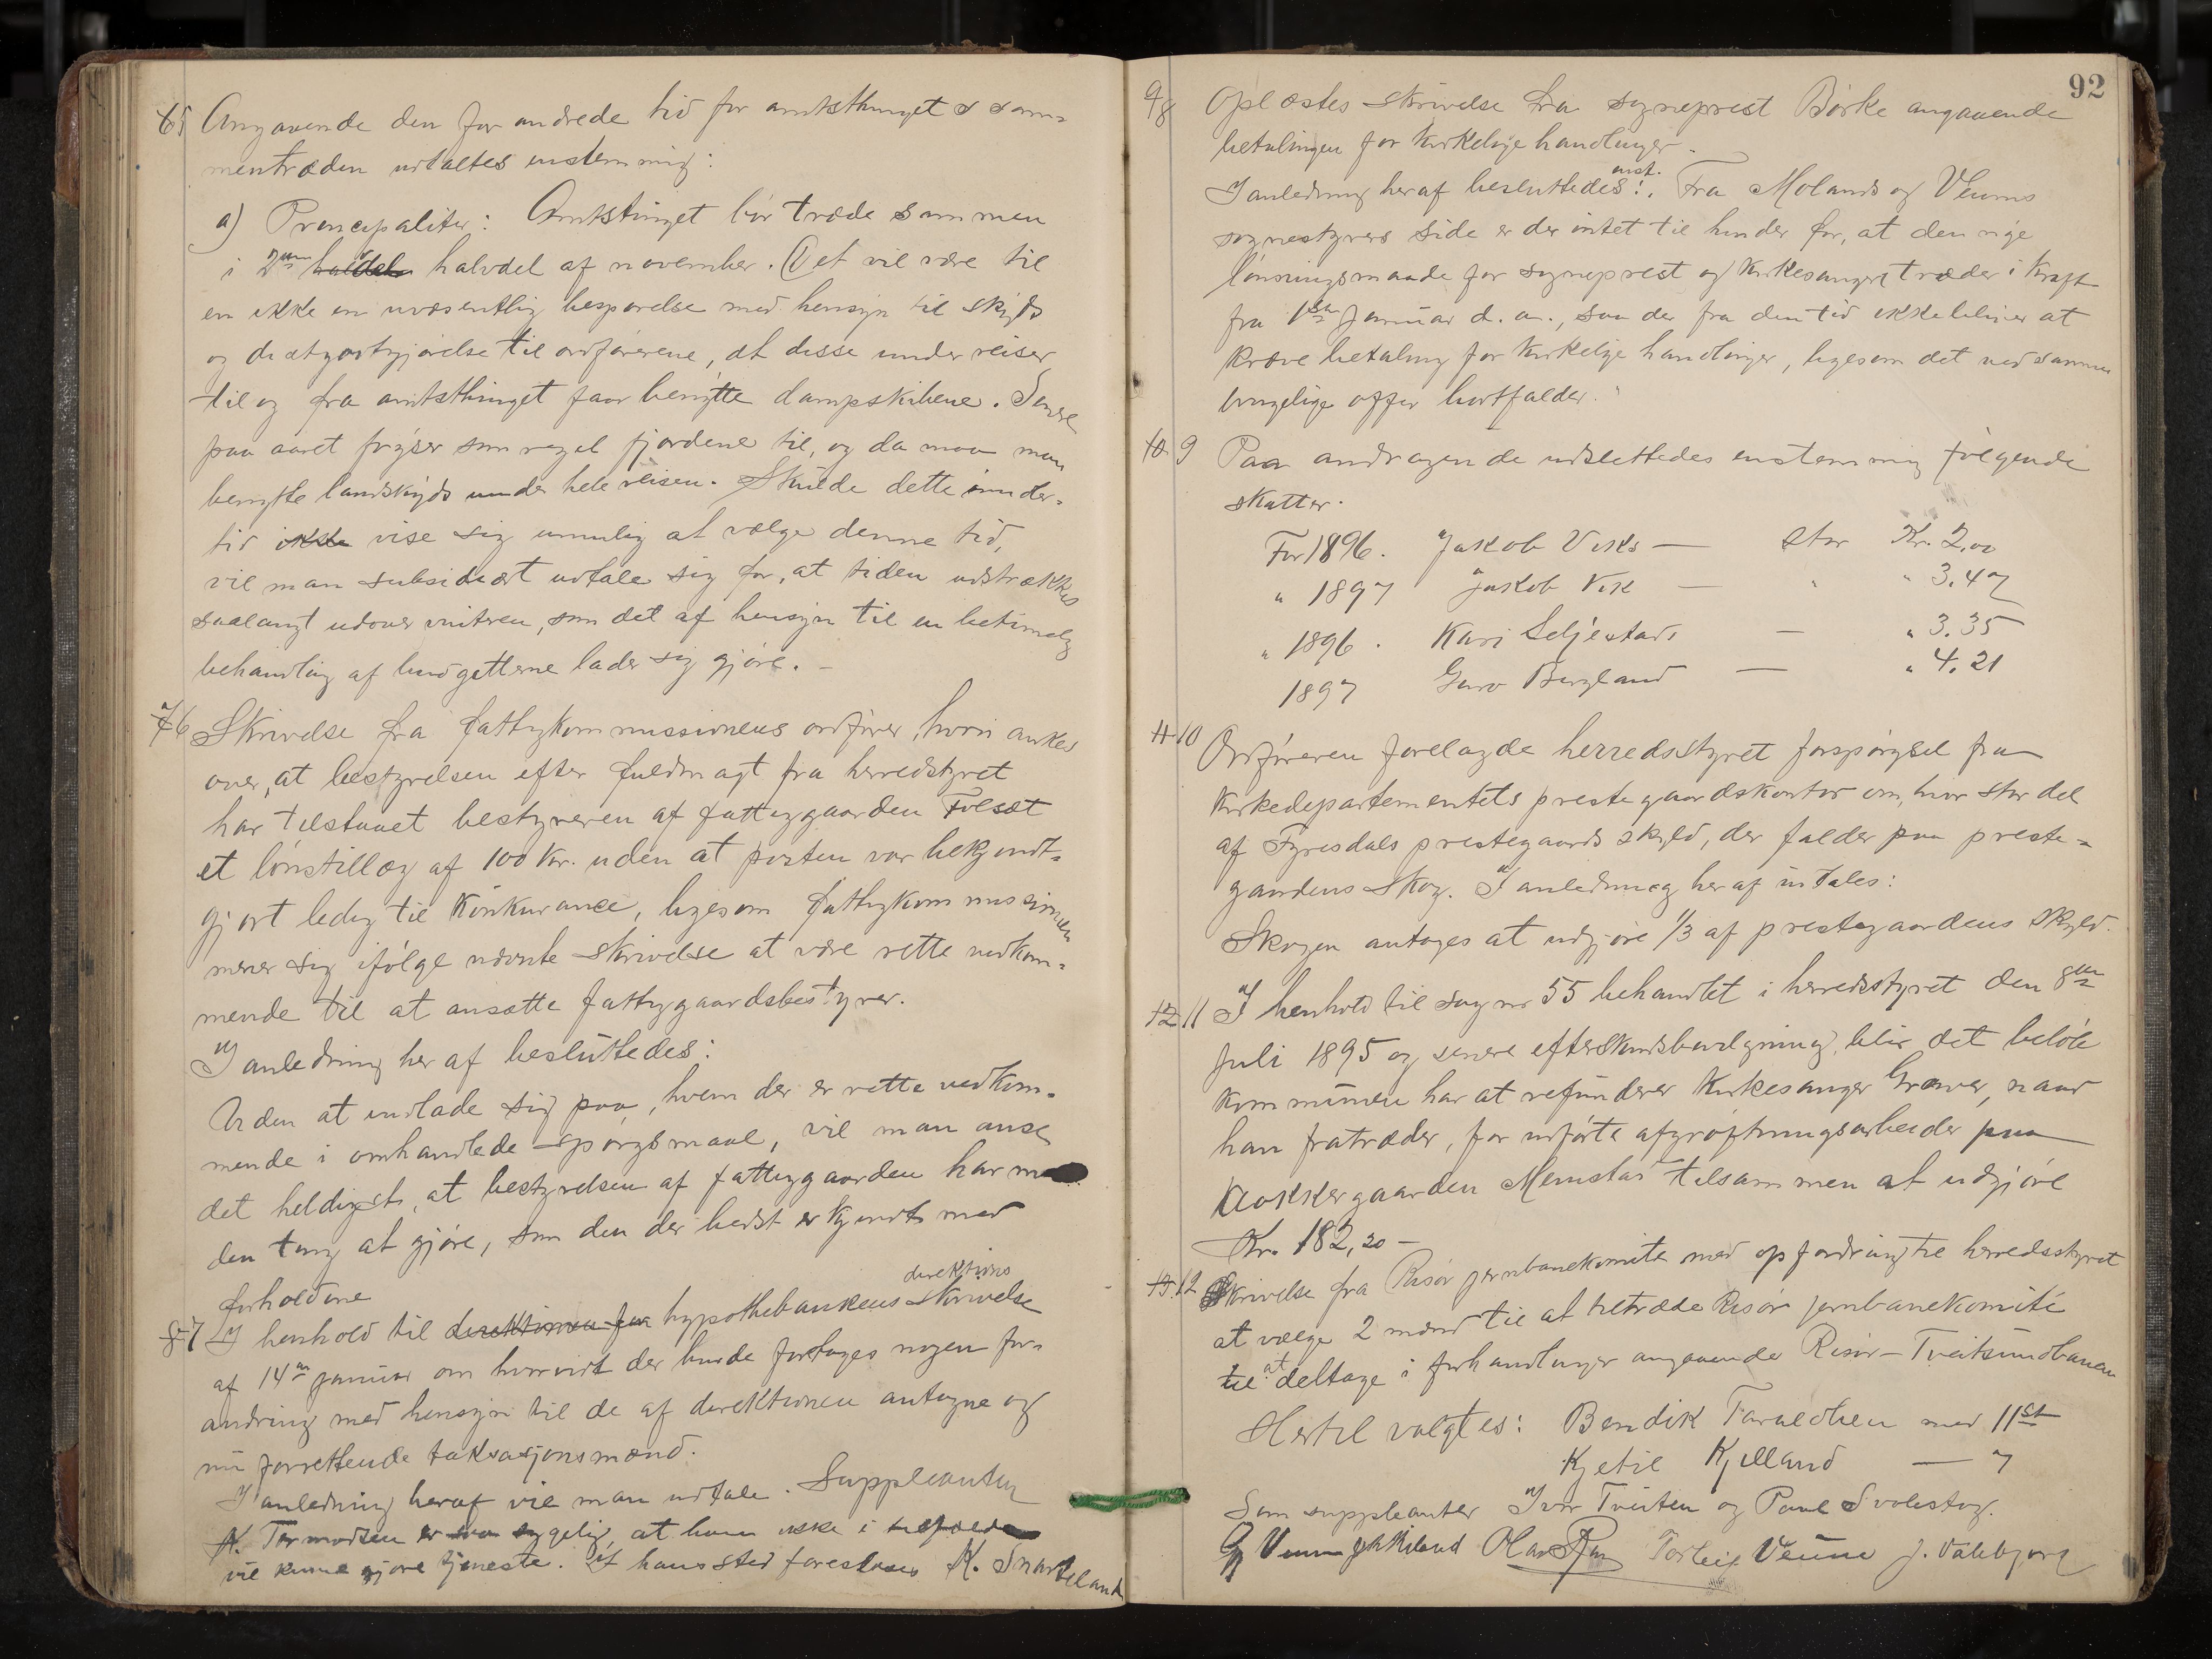 65 Angaaende den forandrede tid for amtsthinget s sam=
mentræden udtaltes enstemmig:
a) Principaliter: Amtstinget bør træde sammen
i 2den halvdel af november. Det vil være til
en ikke en uvæsentlig besparelse med hensyn til skyds
og diætgodtgjørelse til ordførerene, at disse under reiser
til og fra amtsthinget faar benytte dampskibene. Senere
paa aaret fryser som regel fjordene til, og da maa man
benytte landskyds under hele reisen. Skulde dette imider=
tid ikke vise sig umulig at vælge denne tid,
vil man subsidiært udtale sig for, at tiden udstrækkes
saalangt udover vinteren, som det af hensyn til en betimelig
behandling af budgetterne lader sig gjøre. -
76 Skrivelse fra fattigkommissionens ordfører, hvori ankes
over, at bestyrelsen efter fuldmagt fra herredstyret
har tilstaaet bestyreren af fattiggaarden Folsæt
et lønstillæg af 100 Kr. uden at posten var bekjendt=
gjort ledig til Konkurance, ligesom fattigkommissionen
mener sig ifølge nævnte skrivelse at være rette vedkom=
mende til at ansætte fattiggaardsbestyrer.
I anledning heraf besluttedes:
Uden at indlade sig paa, hvem der er rette vedkom=
mende i omhandlede spørgsmaal, vil man anse
det heldigst, at bestyrelsen af fattiggaarden har med
den ting at gjøre, som den der bedst er kjendt med
forholdene
direktions
87 I henhold til direktionen for hypothebankens skrivelse
af 14de januar om hvorvidt der burde foretages nogen for=
andring med hensyn til de af direktionen antagne og
nu forrettende taksasjonsmænd.
I anledning heraf vil man udtale. Suppleanten
K. Tormodsen er saa sygelig, at han ikke i
vil kunne gjøre tjeneste. I hans sted foreslaaes K. Snarteland
92
98 Oplæstes skrivelse fra sogneprest Børke angaaende
betalingen for kirkelige handlinger.
enst.
I anledning heraf besluttedes: Fra Molands og Veums
sognestyrers side er der intet til hinder for, at den nye
lønningsmaade for sogneprest og kirkesanger træder i kraft
fra 1ste Januar d. a., saa der fra den tid ikke bliver at
kræve betaling for kirkelige handlinger, ligesom det ved samme
brugelige offer bortfalder.
10 9 Paa andragende udslettedes enstemmig følgende
skatter.
For 1896. Jakob Viks — stor Kr. 2,00
" 1897 Jakob Vik — " " 3.47
" 1896. Kari Seljestad — " 3.35
1897 Guro Bergland — " 4.21
11 10 Ordføreren forelagde herredsstyret forspørgsel fra
Kirkedepartementets prestegaardskontor om, hvor stor del
af Fyresdals prestegaards skyld, der falder paa preste=
gaardens skog. I anledning heraf udtales:
Skogen antages at udgjøre 1/3 af prestegaardens skyld.
12 11 I henhold til sag no 55 behandlet i herredsstyret den 8de
Juli 1895 og senere efterskudsbevilgning, blir det beløb
kommunen har at refundere Kirkesanger Græver, naar
han fratræder, for udførte afgrøftningsarbeider paa
klokkergaarden Menstad tilsammen at udgjøre
Kr. 182,20 —
13 12 Skrivelse fra Risør jernbanekomite med opfordring til herredsstyret
at vælge 2 mænd til at tiltræde Risør jernbanekomité
til at deltage i forhandlinger angaaende Risør - Tveitsundbanen
Hertil valgtes: Bendik Taraldlien med 11 st
Kjetil Kjilland — 7
Som suppleanter Ivar Tveiten og Paul Svalestog.
G Veum Torleif Veum J. Valebjørg